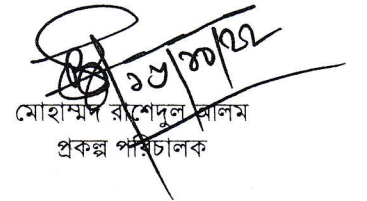 ১৬/১০/২২
মোহাম্মদ রাশেদুল আলম
প্রকল্প পরিচালক